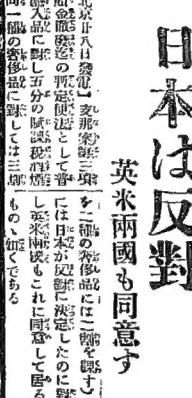 日本は反對
英米兩國も同意す
北京廿八日發電】支那案第一項
釐金撤廢迄の暫定便法として普
通輸入品に對し五分の賦課税酒煙
同一種の奢侈品に對しては三割
を二種の奢侈品には二割を課す）
には日本が反對に決定したのに對
し英米兩國もこれに同意して居る
ものゝ如くである